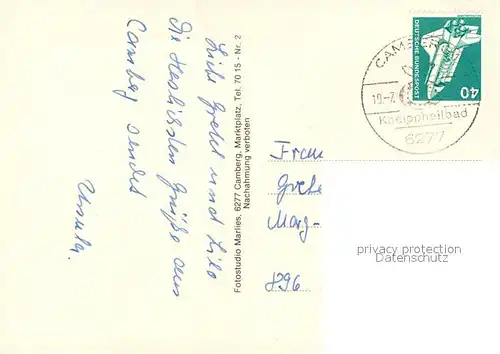 Liebe Gretel und Lilo
Die herzlichsten Grüße aus
Camberg sendet
Ursula.
Fotostudio Marlies, 6277 Camberg, Marktplatz, Tel. 70 15 - Nr. 2
Nachahmung verboten
DEUTSCHE BUNDESPOST
40
CAMBER
19.-7.
Kneippheilbad
6277
Frau
Grete
Marg-
8296
privacy protection
Datenschutz